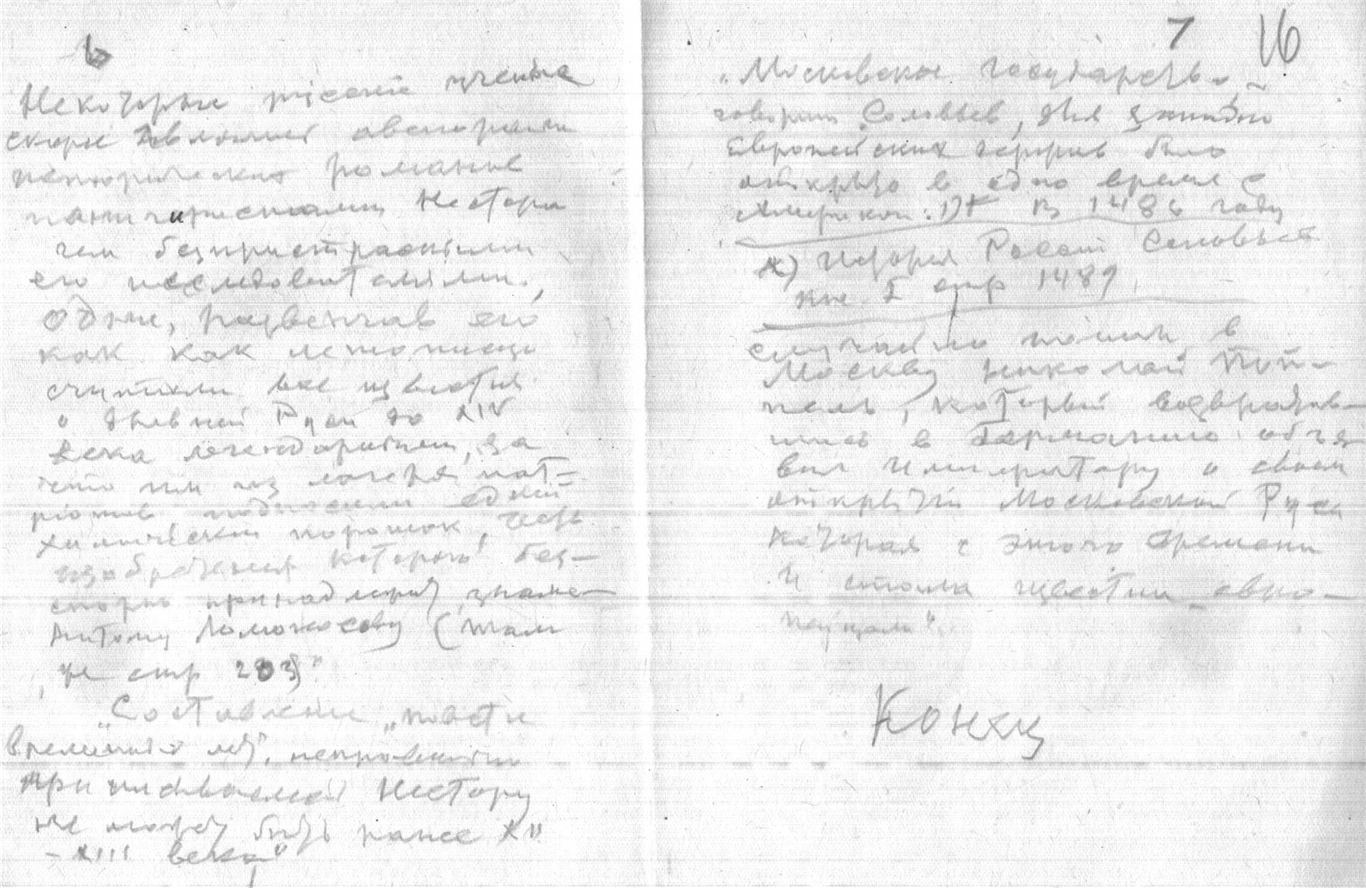 6
Некоторые русские ученые
скорее являлись авторами
исторических романов
панигиристами Нестора
чем безпристрастными
его исследователями.,
Одни, развенчав его
как как летописца
считали все известия
о древней Руси до XIV
века легендарными, за
что им из лагеря пат-
риотов подносили едкий
химический порошок, честь
изобретения которого без-
спорно принадлежит знаме-
нитому Ломоносову (там
же стр 203)"
„Составление „повести
временных лет, неправильно
приписываемой Нестору
не может быть ранее XII
- XIII века"
7 16
„Московское государство, –
говорит Соловьев, для западно
Европейских народов было
открыто в одно время с
Америкой. 1)х В 1486 году
х) История России Соловьева
кн. I стр 1489
случайно попал в
Москву Николай Поп-
пель, который возвратив-
шись в Германию объя
вил Императору о своем
открытии Московской Руси
которая с этого времени
и стала известна евро-
пейцам".
Конец